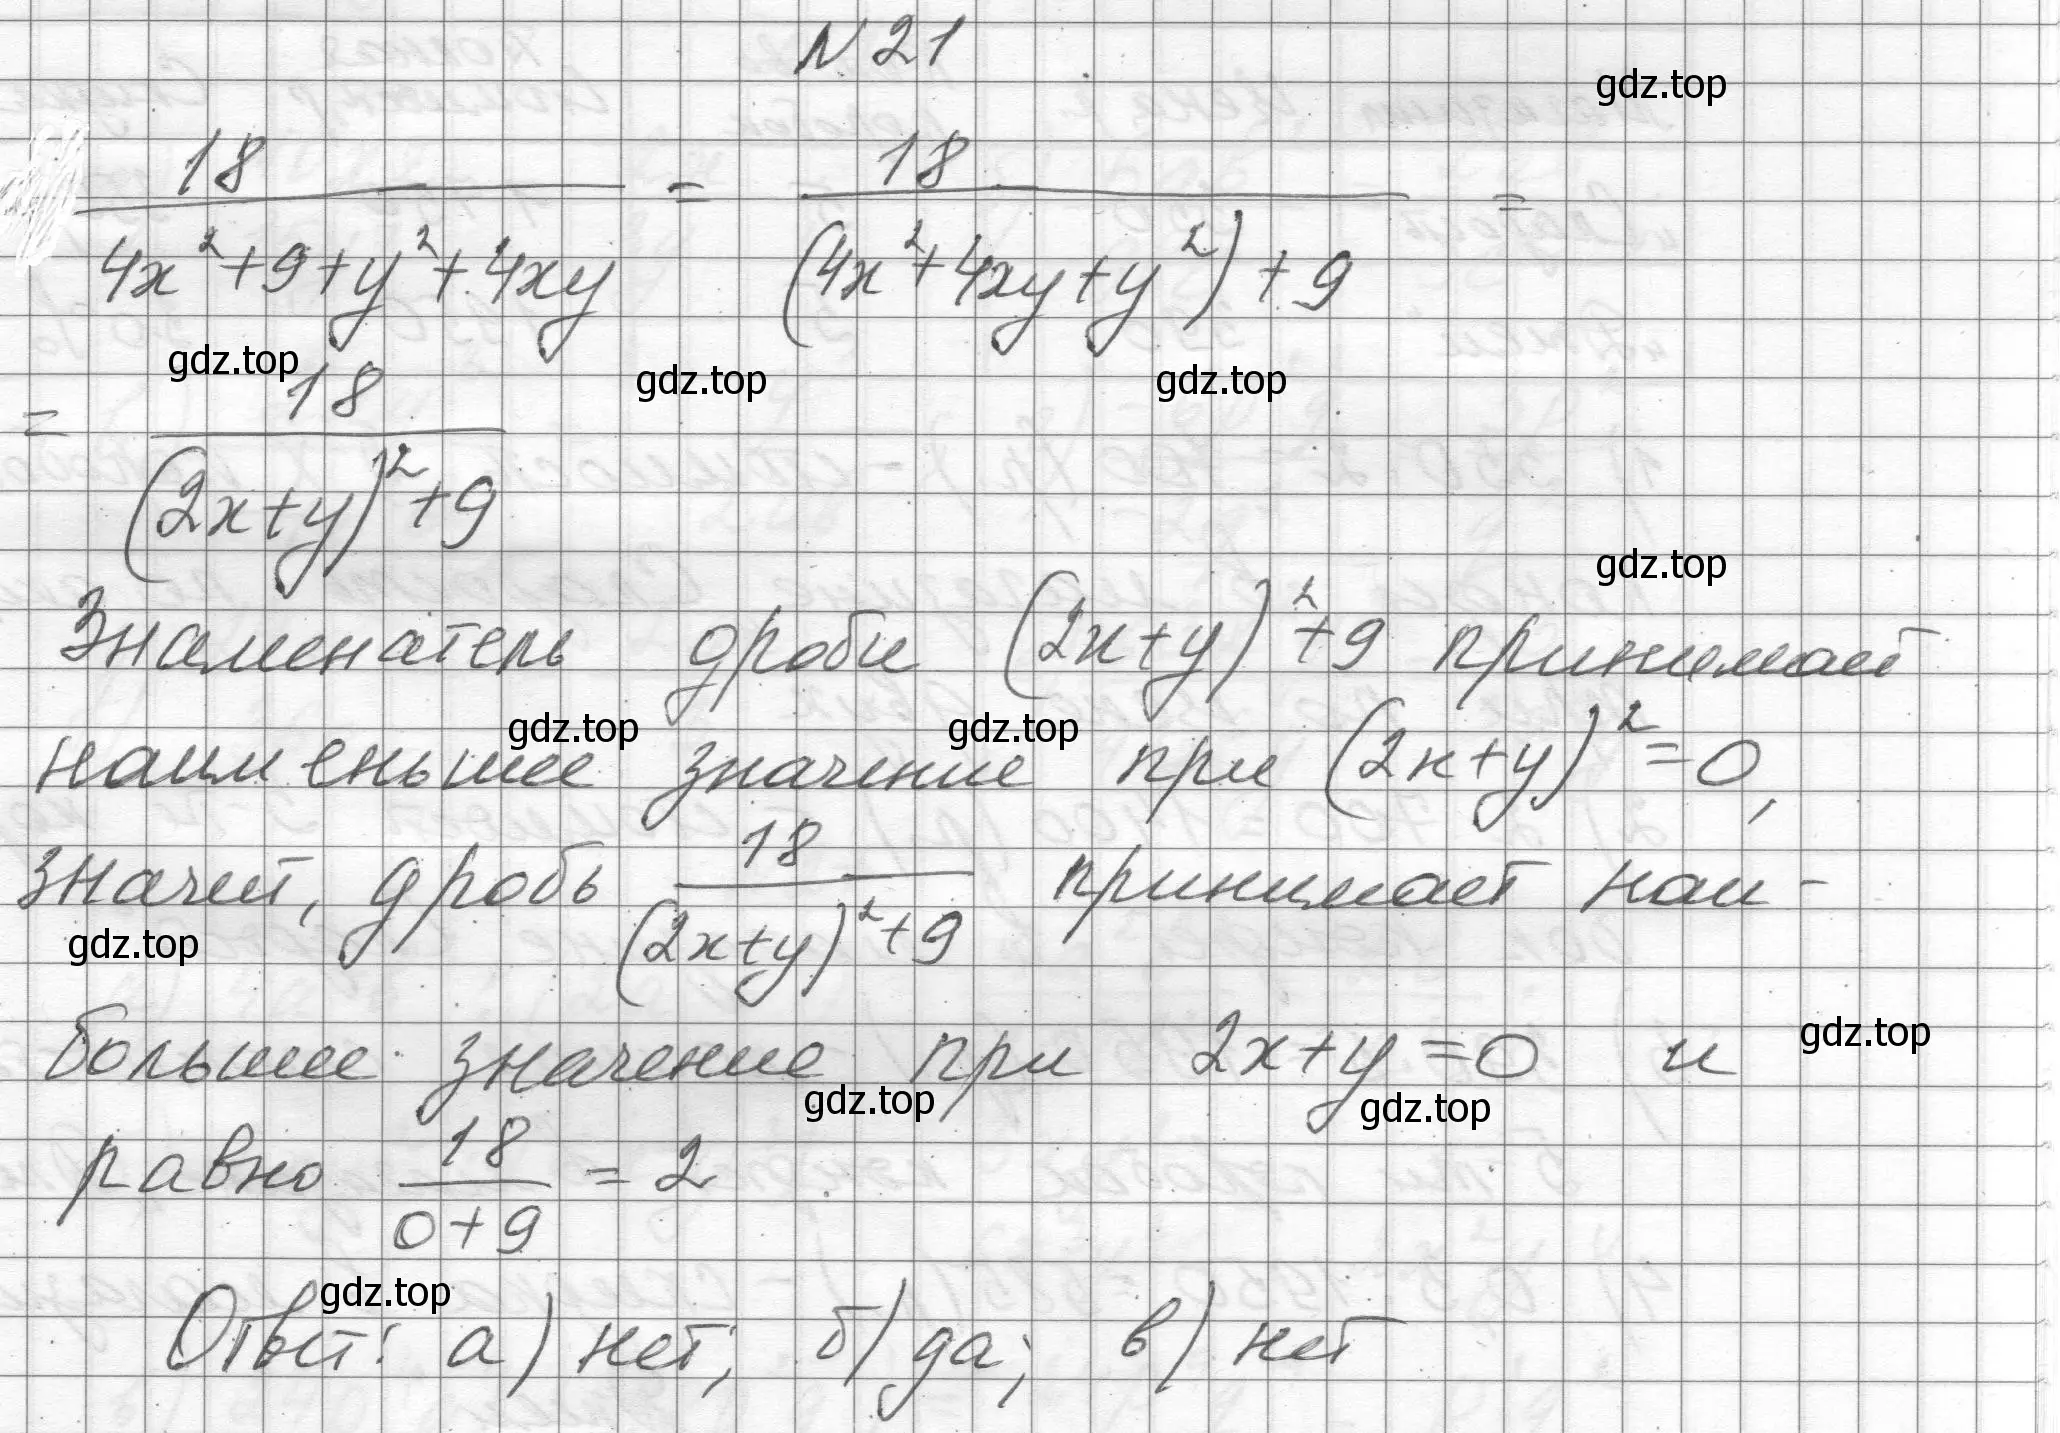 N 21
18 / (4x² + 9 + y² + 4xy) = 18 / ((4x² + 4xy + y²) + 9) =
= 18 / ((2x+y)² + 9)
Знаменатель дроби (2x+y)² + 9 принимает
наименьшее значение при (2x+y)² = 0,
значит, дробь 18 / ((2x+y)² + 9) принимает наи-
большее значение при 2x+y=0 и
равно 18 / (0+9) = 2
Ответ: а) нет; б) да; в) нет
gdz.top
gdz.top
gdz.top
gdz.top
gdz.top
gdz.top
gdz.top
gdz.top
gdz.top
gdz.top
gdz.top
gdz.top